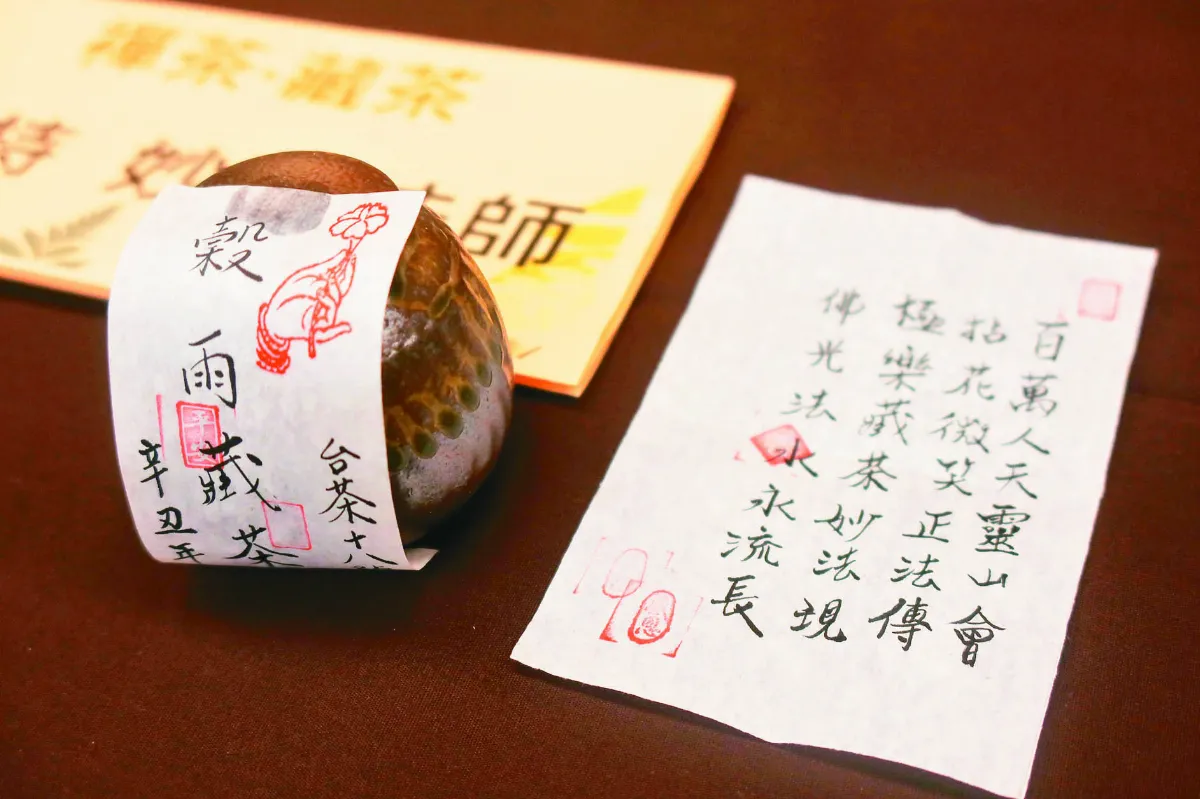 禪茶·藏茶
持 妙 師
穀雨藏茶
台茶十八
辛丑年
平安
百萬人天靈山會
拈花微笑正法傳
極樂藏茶妙法現
佛光法水永流長